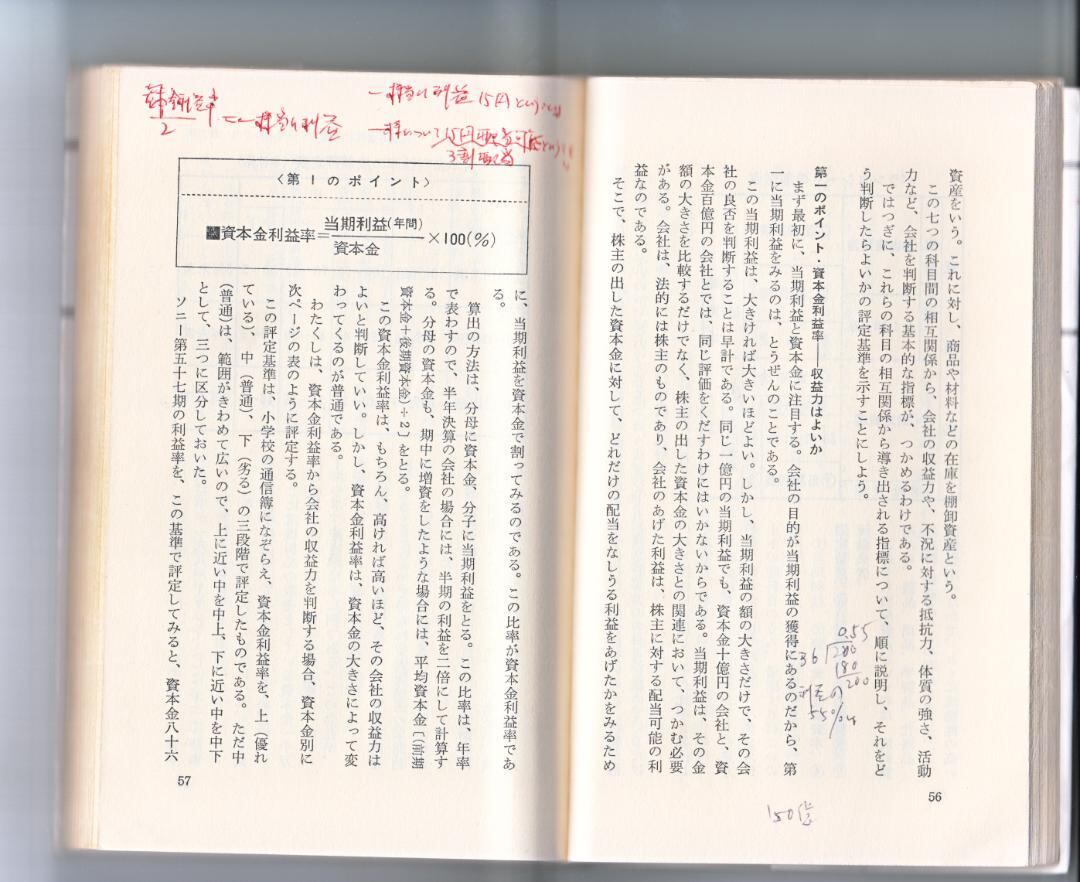 資産をいう。これに対し、商品や材料などの在庫を棚卸資産という。
この七つの科目間の相互関係から、会社の収益力や、不況に対する抵抗力、体質の強さ、活動
力など、会社を判断する基本的な指標が、つかめるわけである。
ではつぎに、これらの科目の相互関係から導き出される指標について、順に説明し、それをど
う判断したらよいかの評定基準を示すことにしよう。
第一のポイント・資本金利益率――収益力はよいか
まず最初に、当期利益と資本金に注目する。会社の目的が当期利益の獲得にあるのだから、第
一に当期利益をみるのは、とうぜんのことである。
この当期利益は、大きければ大きいほどよい。しかし、当期利益の額の大きさだけで、その会
社の良否を判断することは早計である。同じ一億円の当期利益でも、資本金十億円の会社と、資
本金百億円の会社とでは、同じ評価をくだすわけにはいかないからである。当期利益は、その金
額の大きさを比較するだけでなく、株主の出した資本金の大きさとの関連において、つかむ必要
がある。会社は、法的には株主のものであり、会社のあげた利益は、株主に対する配当可能の利
益なのである。
そこで、株主の出した資本金に対して、どれだけの配当をなしうる利益をあげたかをみるため
0.55
36 200
180
200
55%
56
2
一株当り利益
一株当り利益15円という
3割配当
〈第1のポイント〉
資本金利益率=当期利益(年間)/資本金×100(%)
に、当期利益を資本金で割ってみるのである。この比率が資本金利益率であ
る。
算出の方法は、分母に資本金、分子に当期利益をとる。この比率は、年率
で表わすので、半年決算の会社の場合には、半期の利益を二倍にして計算す
る。分母の資本金も、期中に増資をしたような場合には、平均資本金〔（前期
資本金＋後期資本金）÷2〕をとる。
この資本金利益率は、もちろん、高ければ高いほど、その会社の収益力は
よいと判断していい。しかし、資本金利益率は、資本金の大きさによって変
わってくるのが普通である。
わたくしは、資本金利益率から会社の収益力を判断する場合、資本金別に
次ページの表のように評定する。
この評定基準は、小学校の通信簿になぞらえ、資本金利益率を、上（優れ
ている）、中（普通）、下（劣る）の三段階で評定したものである。ただ中
（普通）は、範囲がきわめて広いので、上に近い中を中上、下に近い中を中下
として、三つに区分しておいた。
ソニー第五十七期の利益率を、この基準で評定してみると、資本金八十六
57